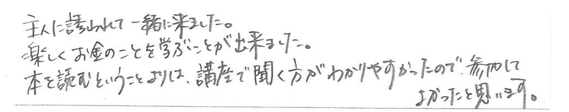 主人に誘われて一緒に来ました。
楽しくお金のことを学ぶことが出来ました。
本を読むということよりは、講座で聞く方がわかりやすかったので、参加して
よかったと思います。